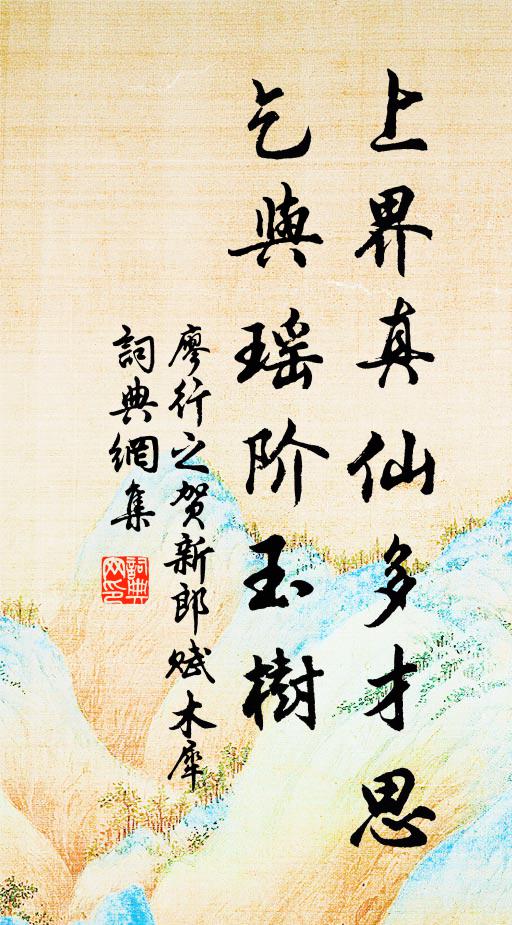 上界真仙多才思
乞與瑶阶玉樹
廖行之贺新郎赋木犀
詞典網集
詞典网印